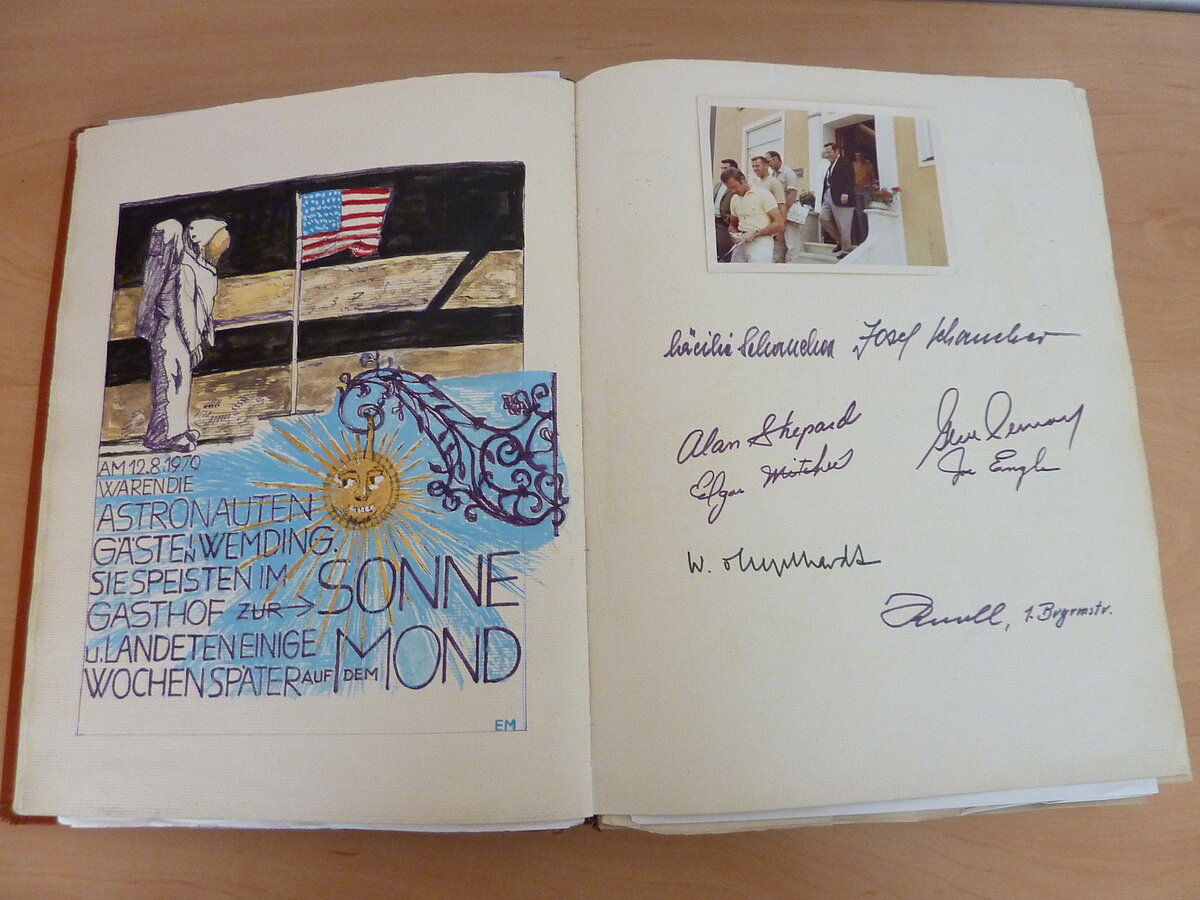 AM 12.8.1970
WAREN DIE
ASTRONAUTEN
GÄSTE IN WEMDING.
SIE SPEISTEN IM
GASTHOF ZUR → SONNE
u. LANDETEN EINIGE
WOCHEN SPÄTER AUF DEM MOND
EM
Cäcilie Schaucher Josef Schaucher
Alan Shepard
Edgar Mitchell
Gene Cernan
Joe Engle
W. v. Engelhardt
1. Brgrmstr.